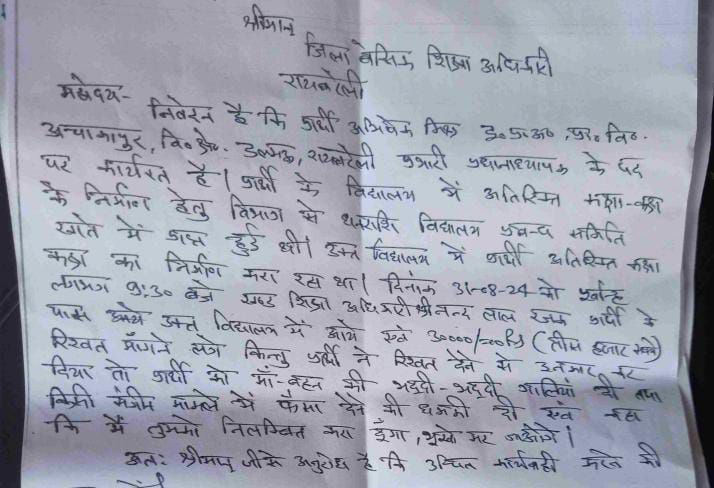 श्रीमान
जिला बेसिक शिक्षा अधिकारी
रायबरेली
महोदय- निवेदन है कि प्रार्थी अभिषेक मिश्र इ०प्र०अ०, प्रा० वि०
वि० क्षे०- ऊंचाहार, रायबरेली प्रभारी प्रधानाध्यापक के पद
पर कार्यरत है। प्रार्थी के विद्यालय में अतिरिक्त कक्षा-कक्ष
के निर्माण हेतु विभाग से धनराशि विद्यालय प्रबन्ध समिति
खाते में प्राप्त हुई थी। उक्त विद्यालय में प्रार्थी अतिरिक्त कक्षा
कक्ष का निर्माण करा रहा था। दिनांक 31-08-24 को पूर्वान्ह
लगभग 9:30 बजे खण्ड शिक्षा अधिकारी श्री नन्द लाल रजक प्रार्थी के
पास उक्त विद्यालय में आये एवं 30000/=00 Rs (तीस हजार रूपये)
रिश्वत माँगने लगे किन्तु प्रार्थी ने रिश्वत देने से इनकार कर
दिया तो प्रार्थी को माँ-बहन की भद्दी-भद्दी गालियां दी तथा
किसी गंभीर मामले में फँसा देने की धमकी दी एवं कहा
कि मैं तुमको निलम्बित करा दूँगा, भूखे मर जाओगे।
अतः श्रीमान् जी से अनुरोध है कि उचित कार्यवाही करने की